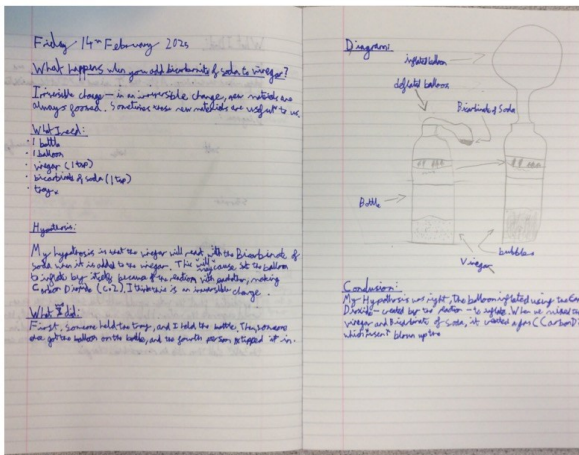 Friday 14th February 2025
What happens when you add bicarbonate of soda to vinegar?
Irreversible change - in an irreversible change, new materials are
always formed. Sometimes these new materials are useful to us.
What I need:
· 1 bottle
· 1 balloon
· vinegar (1 tsp)
· bicarbonate of soda (1 tsp)
· tray
Hypothesis:
My hypothesis is that the vinegar will react with the Bicarbonate of
soda when it is added to the vinegar. This will cause the balloon
to inflate by itself because of the reaction with powder, making
Carbon Dioxide (Co2). I think this is an irreversible change.
What I did:
First, someone held the tray, and I held the bottle. Then someone
else got the balloon on the bottle, and the fourth person tipped it in.
Diagram:
inflated balloon
deflated balloon
Bicarbonate of Soda
Bottle
bubbles
Vinegar
Conclusion:
My Hypothesis was right, The balloon inflated using the
Dioxide - created by the reaction - to inflate. When we mixed the
vinegar and Bicarbonate of soda, it created a gas (Carbon
which blown up the